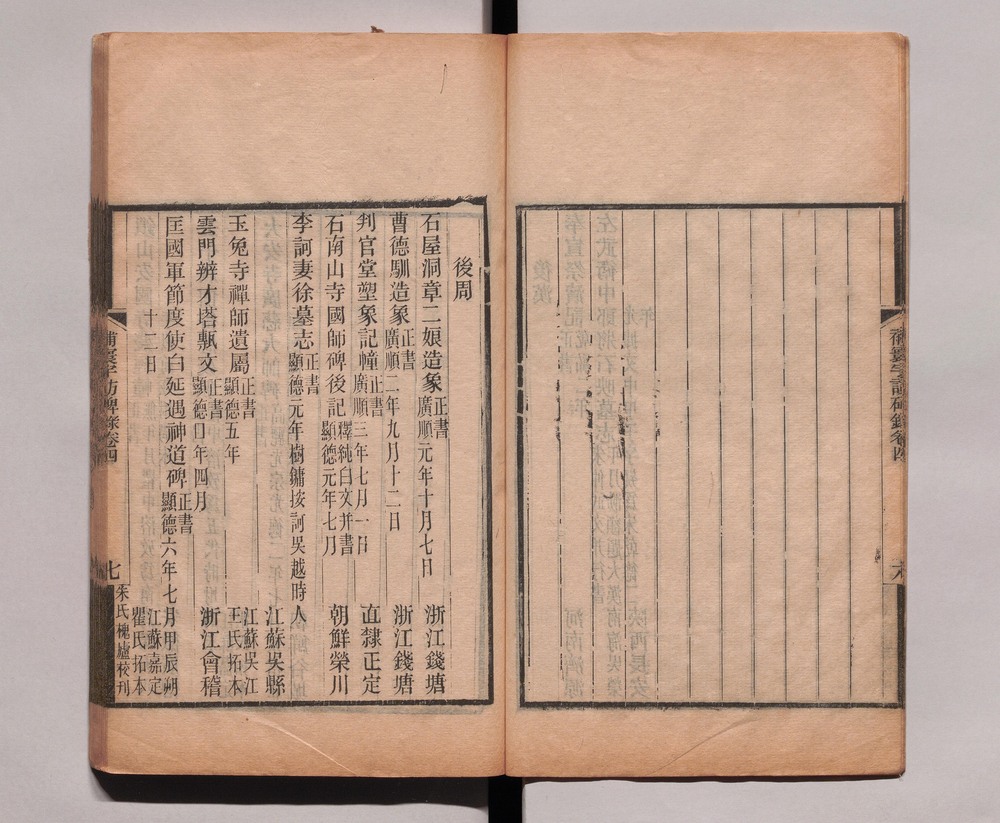 後周
石屋洞章二娘造象 正書 廣順元年十月七日 浙江錢塘
曹德馴造象 正書 廣順二年九月十二日 浙江錢塘
判官堂塑象記幢 正書 廣順三年七月一日 直隸正定
石南山寺國師碑後記 釋純白文并書 顯德元年七月 朝鮮榮川
李訶妻徐墓志 正書 顯德元年樹鏞按訶吳越時人 江蘇吳縣
玉兔寺禪師遺屬 正書 顯德五年 江蘇吳江王氏拓本
雲門辨才塔甎文 正書 顯德口年四月 浙江會稽
匡國軍節度使白延遇神道碑 正書 顯德六年七月甲辰朔 江蘇嘉定瞿氏拓本
十二日
補寰宇訪碑錄卷四
七
朱氏槐廬校刊
補寰宇訪碑錄卷四
六